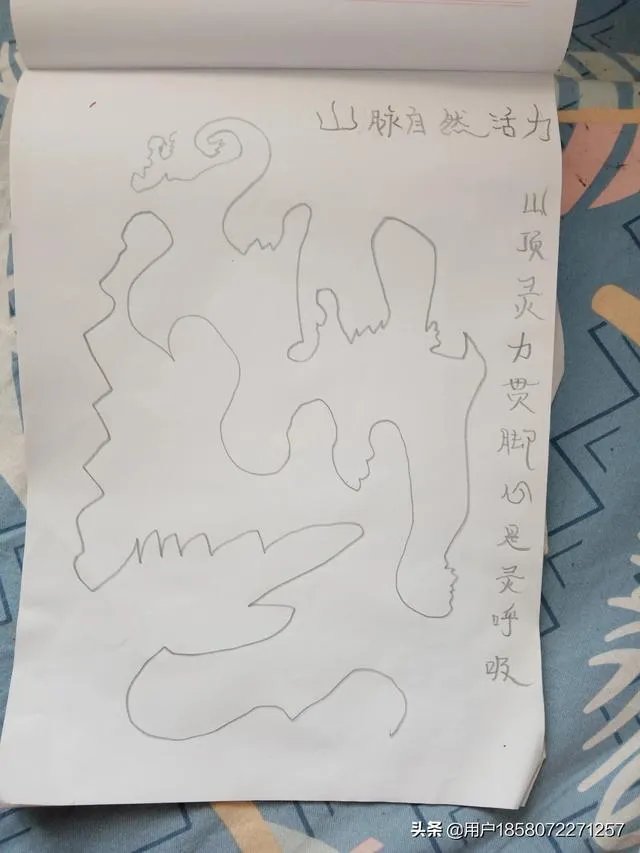 山脉自然活力
山顶灵力贯脚心是灵呼吸
头条 @用户1858072271257